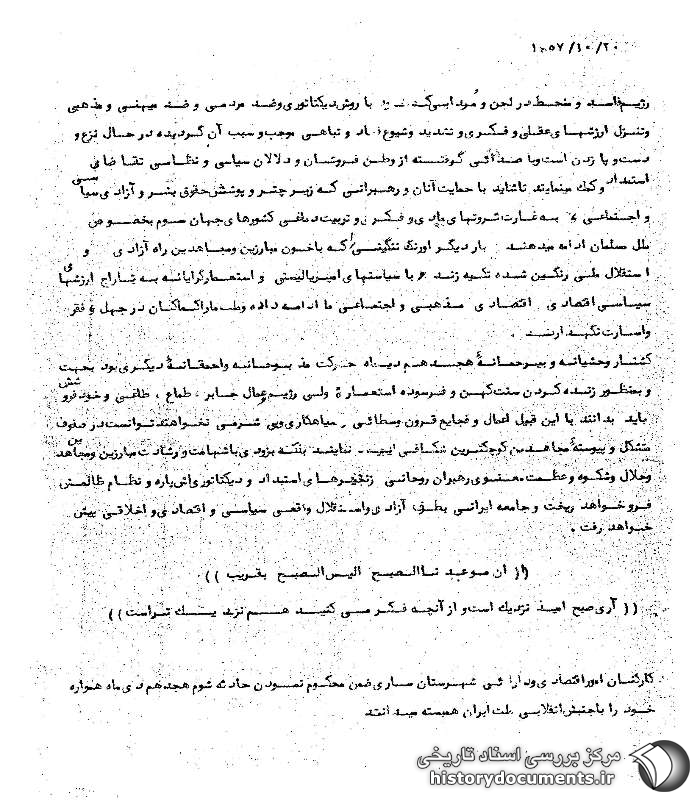 ۱۳۵۷/۱۰/۲۰
رژیم فاسد و منحط در لجن و مرداب که با روش دیکتاتوری و ضد مردمی و ضد میهنی و مذهبی
و تنزل ارزشهای عقلی و فکری و تشدید و شیوع فساد و تباهی موجب و سبب آن گردیده در حال نزع و
دست و پا زدن است و با صدائی گرفته از وطن فروشان و دلالان سیاسی و نظامی تقاضای
استمداد و کمک مینمایند تا شاید با حمایت آنان و رهبرانی که زیر چتر و پوشش حقوق بشر و آزادی سیاسی
و اجتماعی به غارت ثروتهای مادی و فکری و تربیت کشورهای جهان سوم بخصوص
ملل مسلمان ادامه میدهند بار دیگر اورنگ ننگینی که با خون مبارزین و مجاهدین راه آزادی و
استقلال ملی رنگین شده تکیه زند و با سیاستهای امپریالیستی و استعمارگرایانه به تاراج ارزشهای
سیاسی اقتصادی اقتصادی مذهبی و اجتماعی ما ادامه داده و ملت ما را کماکان در جهل و فقر
و اسارت نگهدارند .
کشتار وحشیانه و بیرحمانهٔ هجدهم دیماه حرکت مذبوحانه و احمقانهٔ دیگری بود بجهت
و بمنظور زنده کردن سنت کهن و فرسوده استعمار ولی رژیم و عمال جابر ، طماع ، طاغی و خودفروشش
باید بدانند با این قبول اعمال و فجایع قرون وسطائی سیاهکاری و بی شرمی نخواهند توانست در صفوف
متشکل و پیوستهٔ مجاهدین کوچکترین شکافی ایجاد نمایند بلکه بزودی با شهامت و رشادت مبارزین و مجاهدین
و جلال و شکوه و عظمت معنوی رهبران روحانی زنجیرهای استبداد و دیکتاتوری پاره و نظام ظالمش
فرو خواهد ریخت و جامعه ایرانی بطرف آزادی و استقلال واقعی سیاسی و اقتصادی و اخلاقی پیش
خواهد رفت .
(( ان موعید نا الصبح الیس الصبح بقریب ))
(( آری صبح امید نزدیک است و از آنچه فکر می کنید هم نزدیک تر است ))
کارکنان امور اقتصادی و دارائی شهرستان ساری ضمن محکوم نمودن حادثه شوم هجدهم دی ماه همواره
خود را با جنبش انقلابی ملت ایران همبسته میدانند
مرکز بررسی اسناد تاریخی
historydocuments.ir